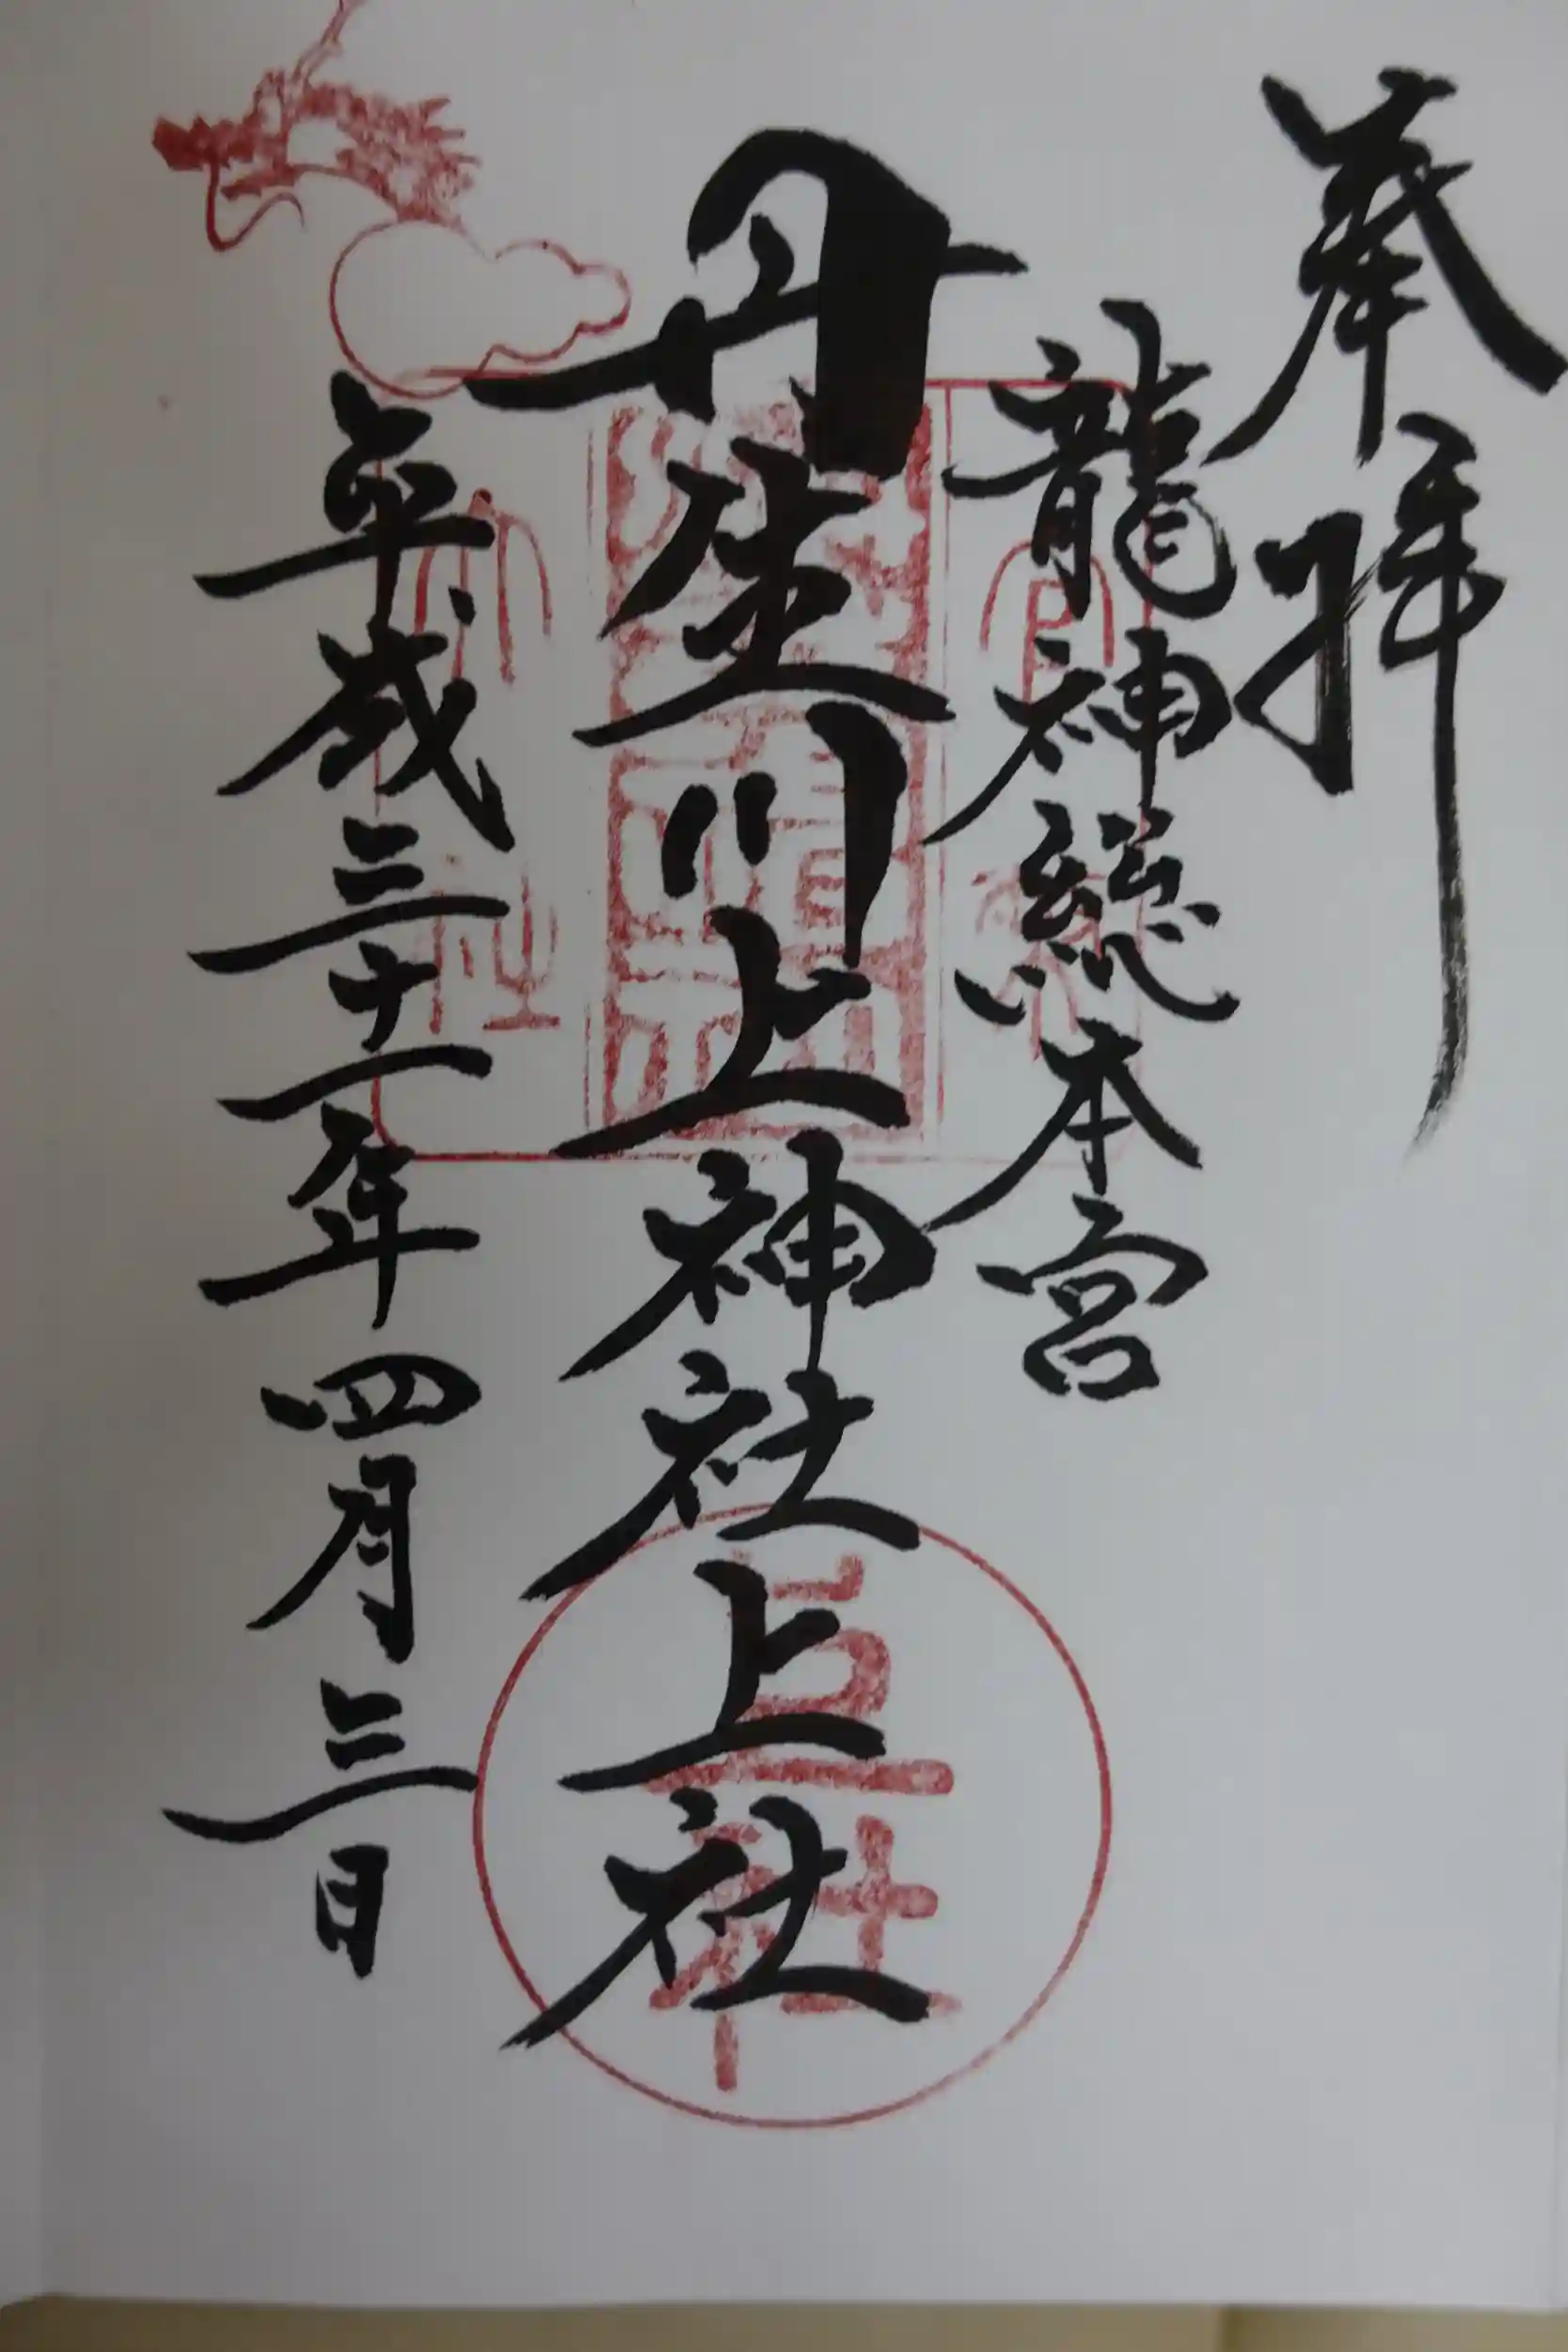 奉拝
龍神総本宮
丹生川上神社上社
平成三十一年四月三日
上社